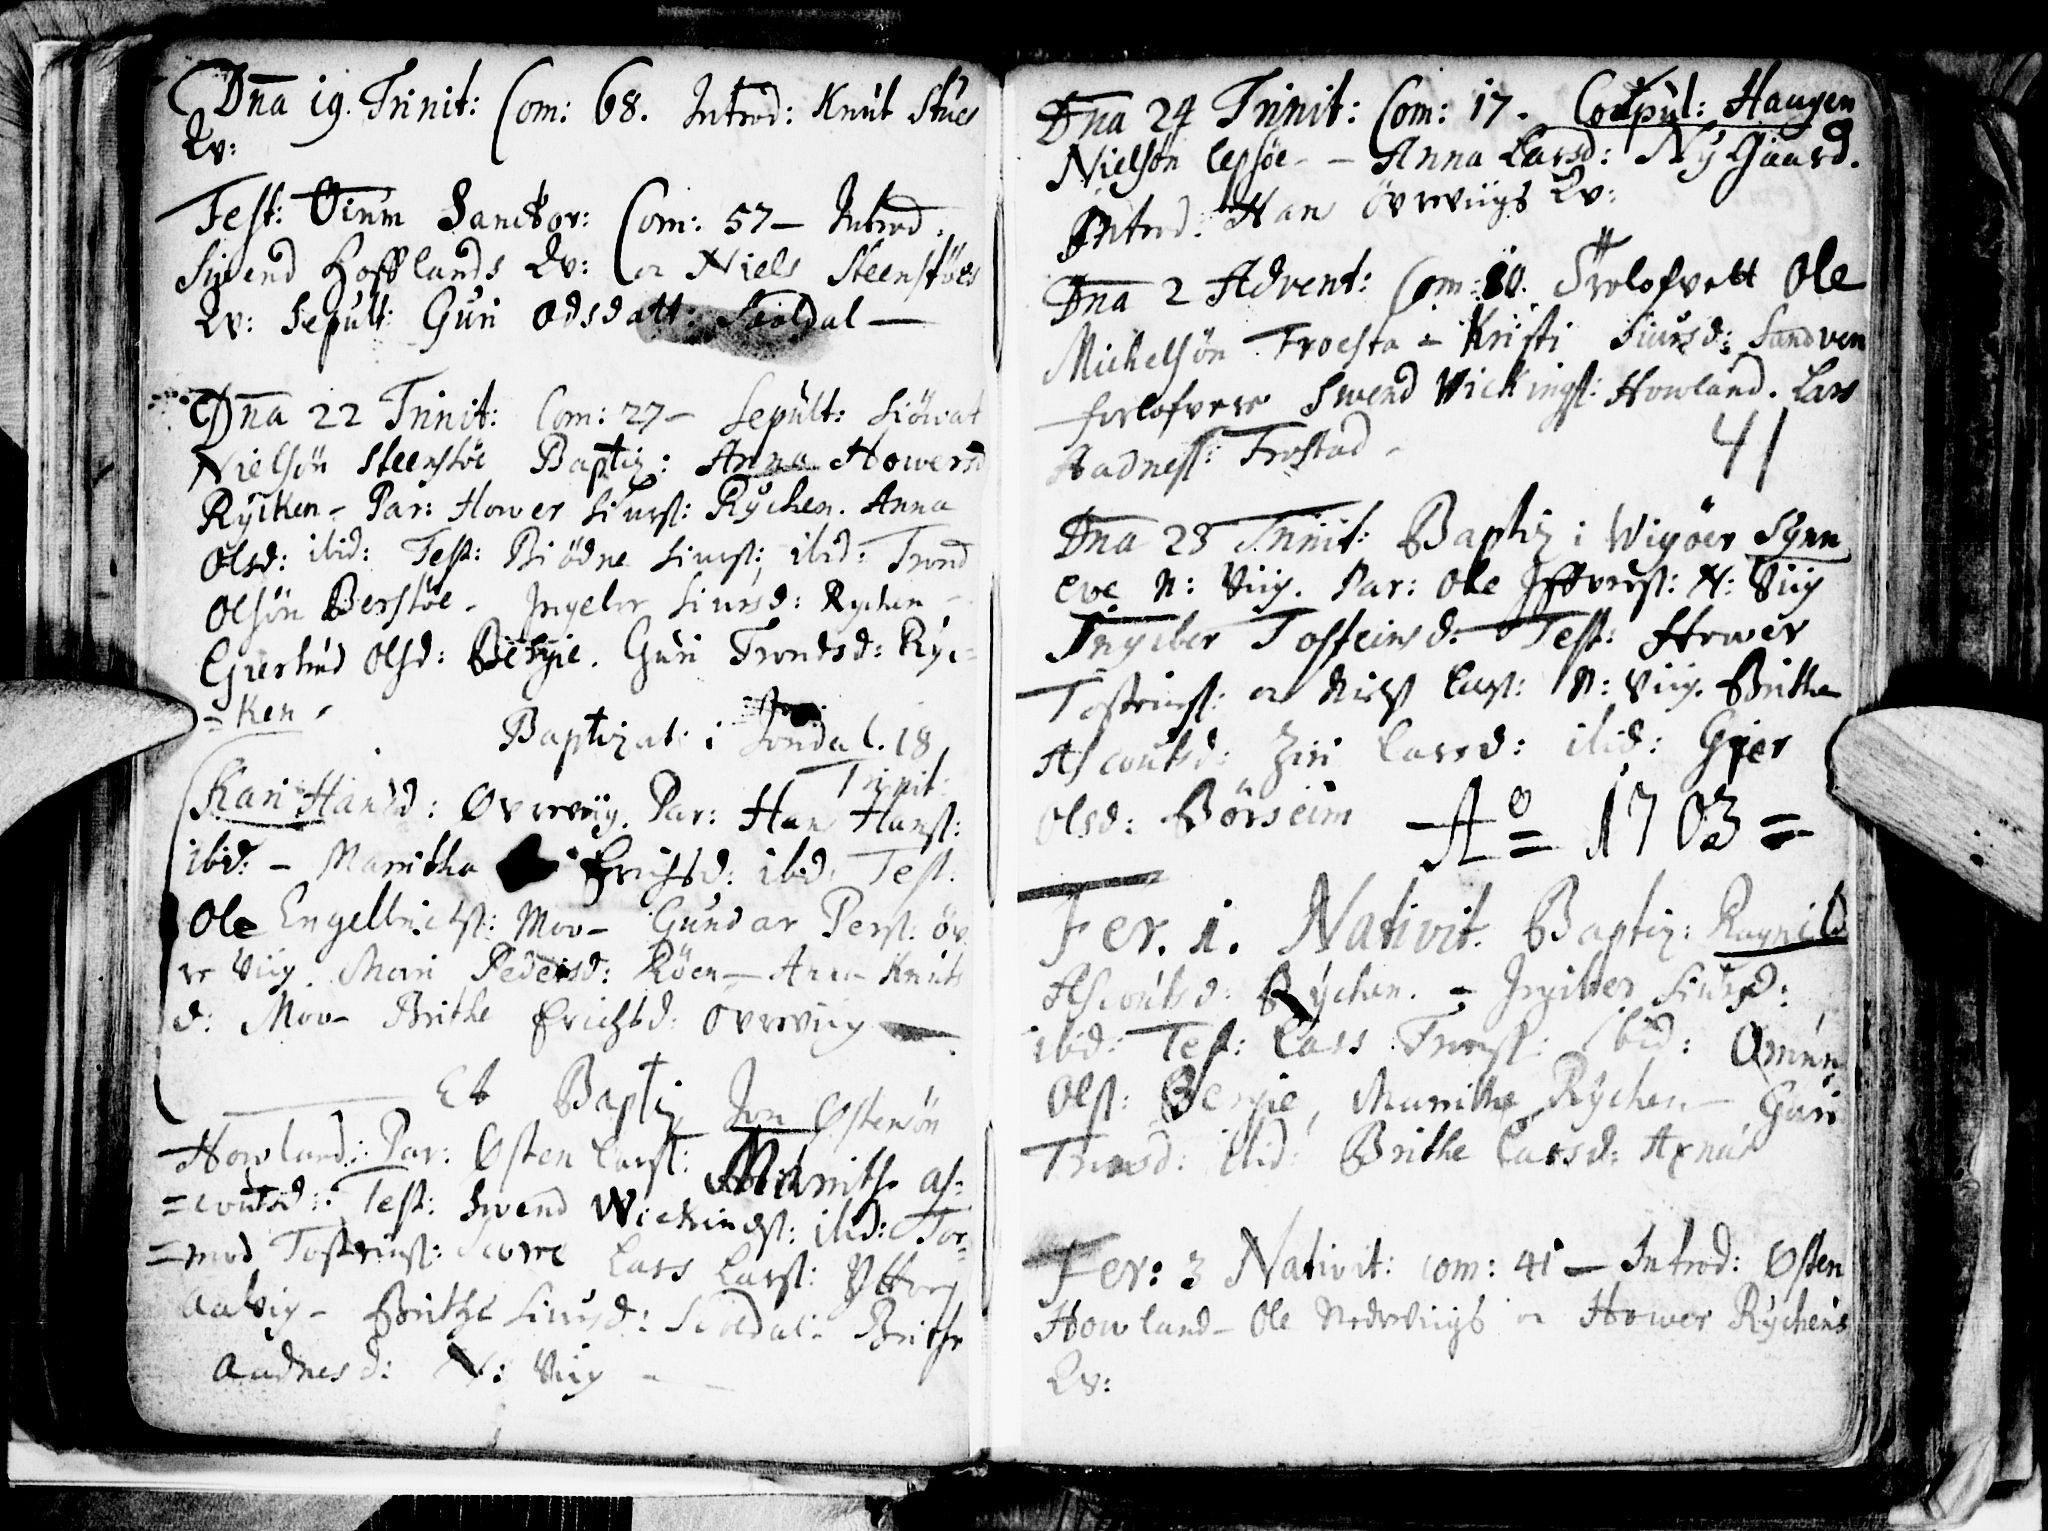 Dna 19. Trinit: Com: 68. Introd: Knut Stues
Qv:
Fest: Oium Sanctor: Com: 57 - Introd.
Sivend Hofflands Qv: oc Niels Steenstøes
Qv: Sepult: Guri Odsdatt: Sioldal —
Dna 22 Trinit: Com: 27 - Sepult: Siöwat
Nielsön Steenstöe Baptiz: Anna Howersd
Rÿcken - Par: Hower Siursf: Rÿchen. Anna
Olsd: ibid: Test: Biödne Siursf: ibid: Trond
Olsön Berstöe - Ingebor Siursd: Rychen -
Giertrud Olsd: Bergie. Guri Trondsd: Ryc=
=ken -
Baptizat: i Jondal. 18
Trinit:
Kari Hansd: Øvreviig. Par: Hans Hansf:
ibid: - Maritha Erichsd: ibid. Test.
Ole Engelbrichtsf: Mov - Gundar Persf: öv
re Viig. Mari Pedersd: Röen - Anna Knuts
d: Mov - Brithe Erichsd: Ovreviig
Et Baptiz Jon Østensön
Howland: Par: Østen Larsf: Maritha As=
=coutsd: Test: Swend Wickingsf: ibid: Tor=
=mod Tosteinsf: Lars Larsf: Yttre
Aalvig - Brithe Siursd: Sioldal - Brithe
Audnesd: N: Viig - -
Dna 24 Trinit: Com: 17. Copul: Haugen
Nielsön lepsöe - - Anna Larsd: NyGaard.
Introd: Hans Övreviigs Qv:
Dna 2 Advent: Com: 80. Trolofvett Ole
Michelsön Troesta - Kristi Siursd: Sandven
forlofvere Swend Wickingsf: Howland. Lars
Aadnessf: Trostad -
41
Dna 23 Trinit: Baptiz i Wigöer Synn
eve N: Viig. Par: Ole Iffversf: N: Viig
Ingeber Tosteinsd: Test: Hower
Tosteinsf: oc Niels Larsf: N: Viig. Brithe
Ascoutsd: Ziri Larsd: ibid: Gjer
Olsd: Börseim Ao 1703 =
Fer. 1. Nativit. Baptiz: Ragnild
Ascoutsd: Rÿchen. - Ingeber Siursd:
ibid: Test: Lars Tronsf: ibid: Omun
Olsf: Bergie, Marithe Rÿchen - Guri
Tronsd: ibid: Brithe Larsd: Axnäs
Fer: 3 Nativit: com: 41 - Introd: Østen
Howland - Ole Nedreviigs oc Hower Rÿchens
Qv: